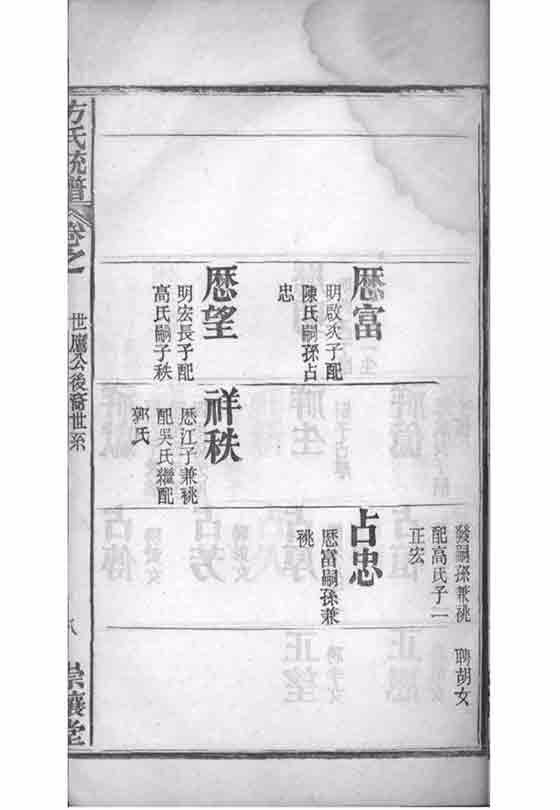 厯富
明啟次子配
陳氏嗣孫占
忠
厯望
明宏長子配
高氏嗣子秩
祥秩
厯江子兼祧
配吳氏繼配
郭氏
發嗣孫兼祧
配高氏子一
正宏
占忠
厯富嗣孫兼
祧
聘胡女
方氏統譜
卷之
公後裔世系
八
崇讓堂